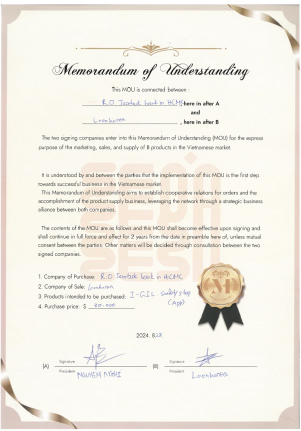 Memorandum of Understanding
This MOU is connected between :
R.O Jacotek bank in HCMC here in after A
and
Loenkorea , here in after B
The two signing companies enter into this Memorandum of Understanding (MOU) for the express
purpose of the marketing, sales, and supply of B products in the Vietnamese market.
It is understood by and between the parties that the implementation of this MOU is the first step
towards successful business in the Vietnamese market.
This Memorandum of Understanding aims to establish cooperative relations for orders and the
accomplishment of the product supply business, leveraging the network through a strategic business
alliance between both companies.
The contents of the MOU are as follows and this MOU shall become effective upon signing and
shall continue in full force and effect for 2 years from the date in preamble here of, unless mutual
consent between the parties. Other matters will be decided through consultation between the two
signed companies.
1. Company of Purchase: R.O in HCMC
2. Company of Sale: Loenkorea
3. Products intended to be purchased: I-GIL
(App)
4. Purchase price: $
2024. 8.
Signature
Signature
(A) President
(B) President Loenkorea